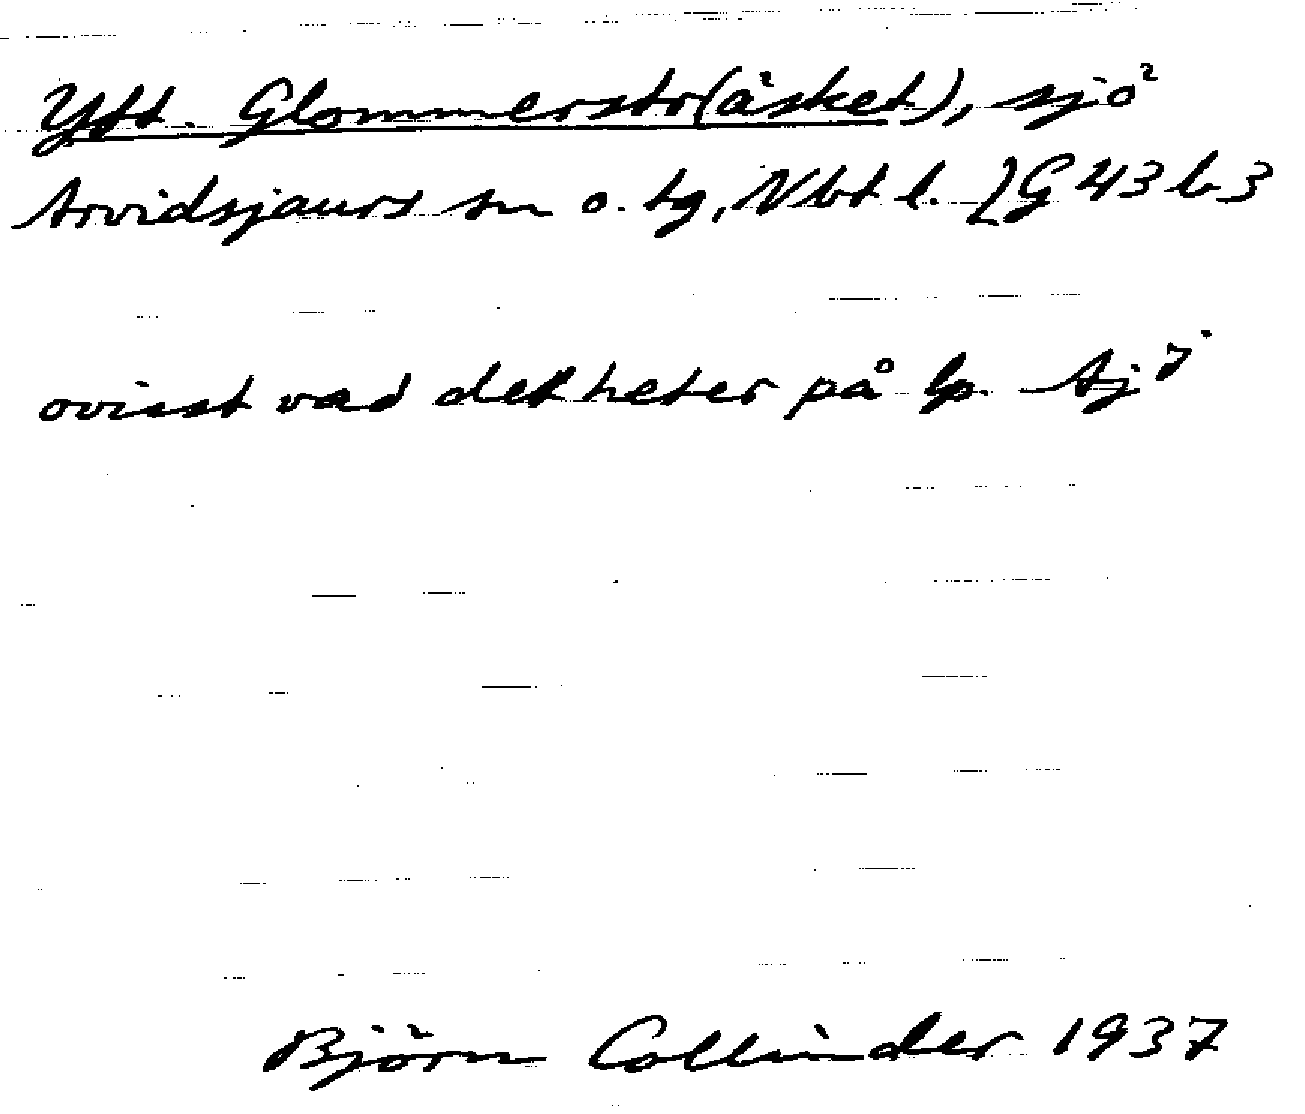 Ytt. Glommerstr(äsket), sjö
Arvidsjaurs sn o. tg, Nbt l. [G 43 b 3
ovisst vad det heter på lp.
Björn Collinder 1937